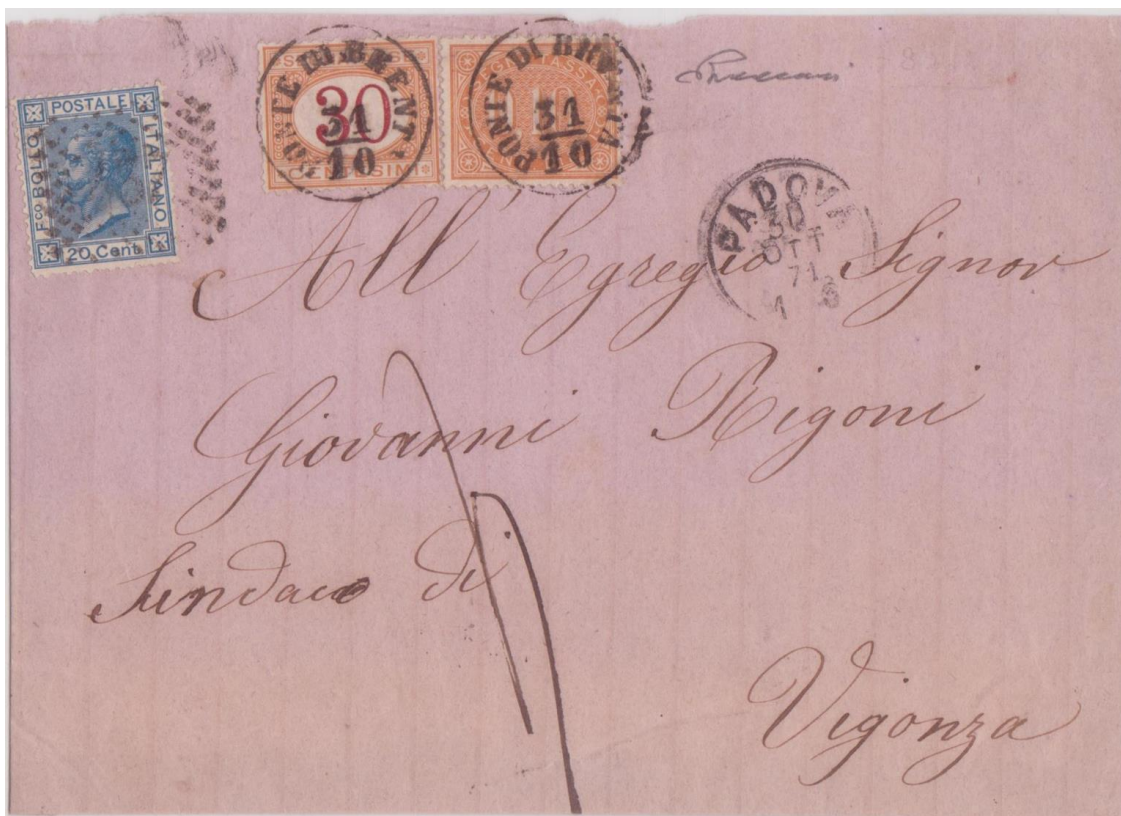 POSTALE
ITALIANO
Fco BOLLO
20 Cent
30
CENTESIMI
PONTE DI BRENTA
31
10
PONTE DI BRENTA
31
10
PADOVA
30
OTT
71
All' Egregio Signor
Giovanni Rigoni
Sindaco di
Vigonza